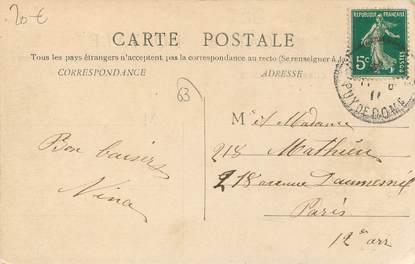 20€
CARTE POSTALE
Tous les pays étrangers n'acceptent pas la correspondance au recto (Se renseigner à
CORRESPONDANCE
ADRESSE
RÉPUBLIQUE FRANÇAISE
5c
POSTES
PUY-DE-DOME
11
63
Bon baisers
Nina
M et Madame
218 Mathieu
218 avenue Daumesnil
Paris
12e arr